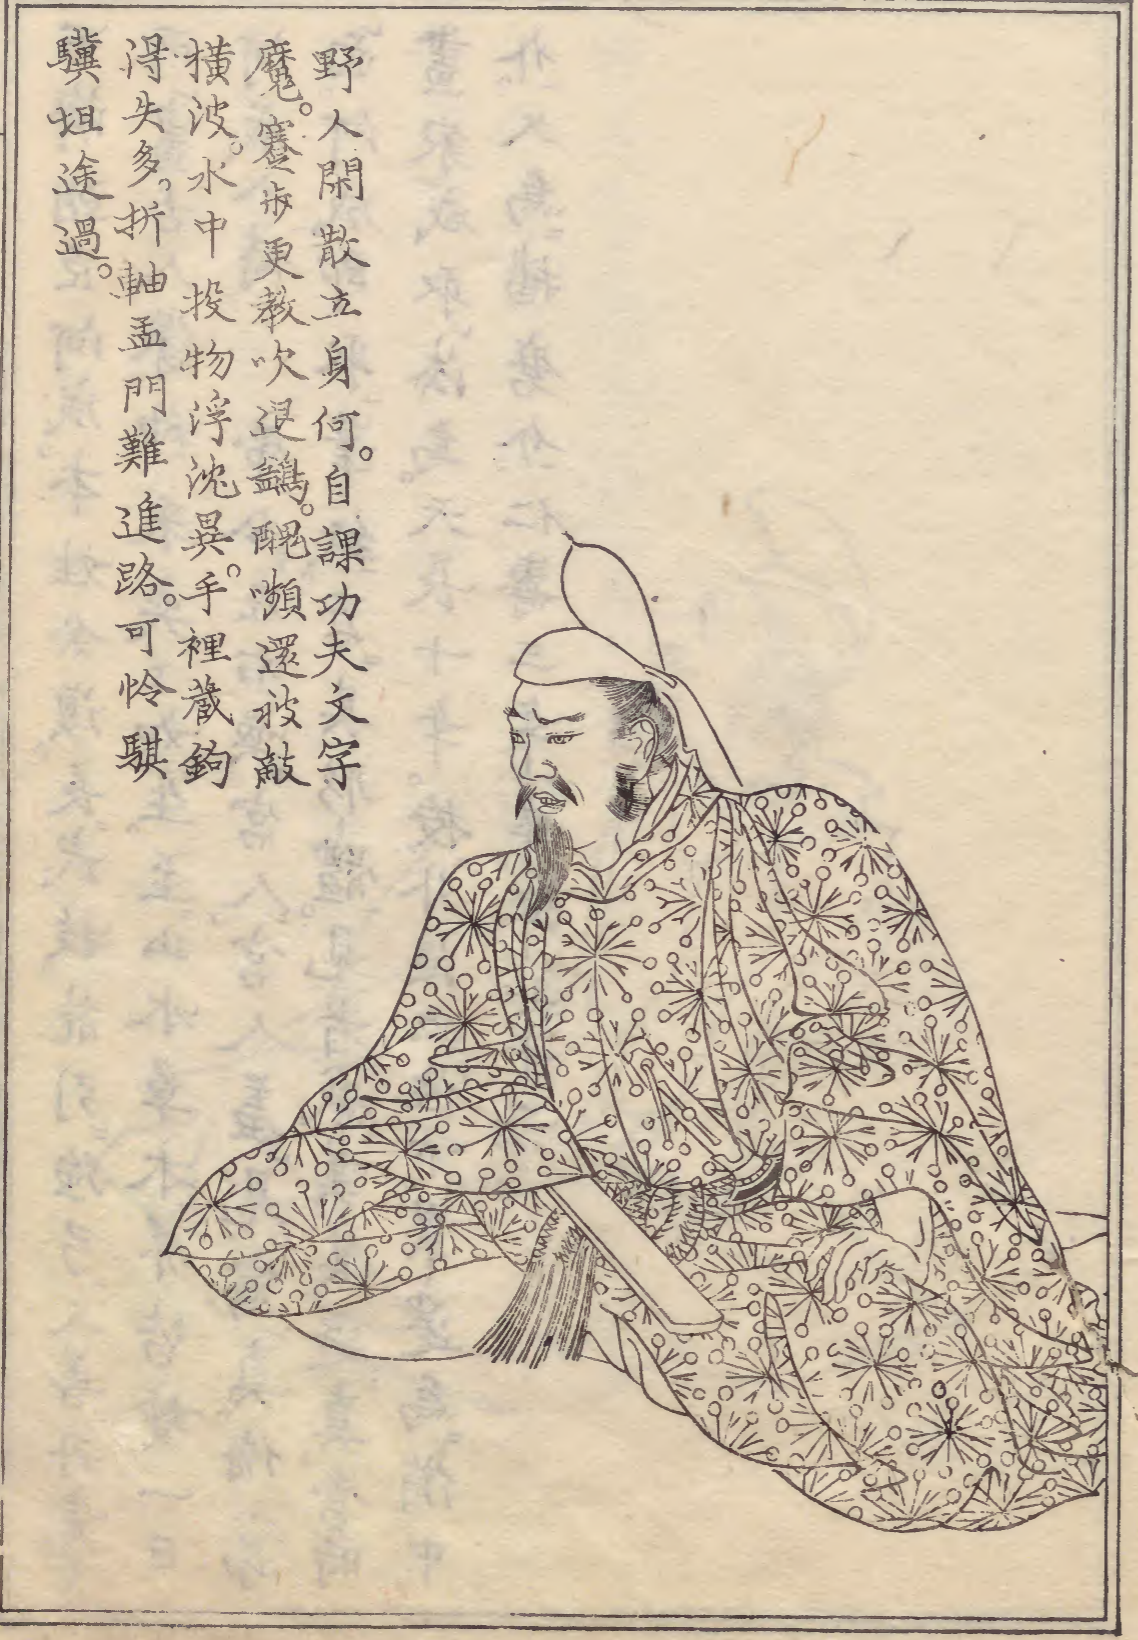 野人閑散立身何。自課功夫文字
魔。蹇步更教吹退鷁。醜嚬還被敵
橫波。水中投物浮沈異。手裡藏鉤
得失多。折軸孟門難進路。可怜騏
驥坦途過。